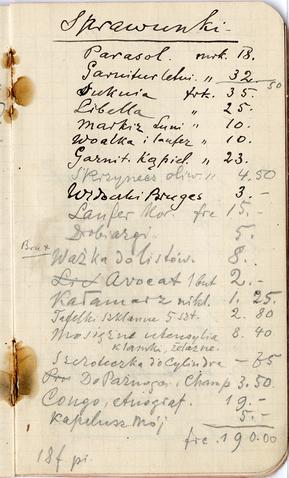 Sprawunki.
Parasol. mrk. 18.
Garnitur letni „ 32.50
Suknia frk. 35.
Libella „ 25.
Markiz Luni „ 10.
Woalka i laufer „ 10.
Garnit. kąpiel. „ 23.
Skrzyneczka „ 4.50
Widoczki Bruges 3.-
Laufer Mor. frc 15.-
Drobiazgi. 5.
Brux Ważka do listów. 8.
Avocat 1 but 2.-
Kałamarz nikl. 1.25.
Tafelki szklanne 5 szt. 2.80
Mosiężne utensylia 8.40
klamki, żelazne.
Szczoteczka do Cylindra - 75
Do Parnago, Champ 3.50
Congo, etnograf. 19.-
Kapelusz mój 5.-
frc. 190.00
18f pi.